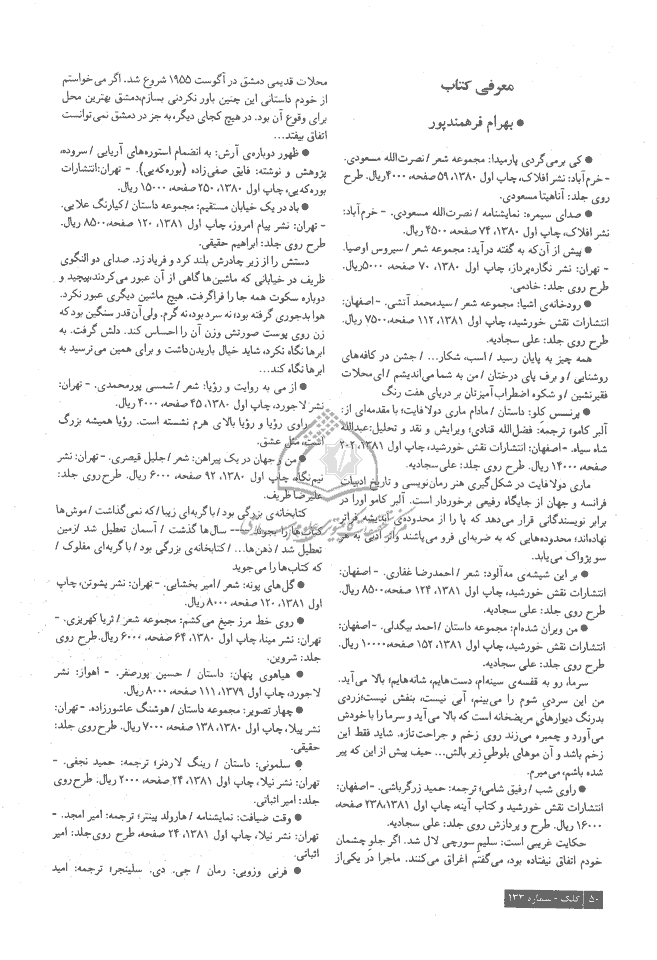 معرفی کتاب
● بهرام فرهمندپور
● کی برمی‌گردی پارمیدا: مجموعه شعر / نصرت‌الله مسعودی.
- خرم‌آباد: نشر افلاک، چاپ اول ۱۳۸۰، ۵۹ صفحه، ۴۰۰۰ریال. طرح
روی جلد: آناهیتا مسعودی.
● صدای سیمره: نمایشنامه / نصرت‌الله مسعودی. - خرم‌آباد:
نشر افلاک، چاپ اول ۱۳۸۰، ۷۴ صفحه، ۴۵۰۰ ریال.
● پیش از آن‌که به گفته درآید: مجموعه شعر / سیروس اوصیا.
- تهران: نشر نگاره‌پرداز، چاپ اول ۱۳۸۰، ۷۰ صفحه، ۵۰۰۰ریال.
طرح روی جلد: خادمی.
● رودخانه‌ی اشیا: مجموعه شعر / سیدمحمد آتشی. - اصفهان:
انتشارات نقش خورشید، چاپ اول ۱۳۸۱، ۱۱۲ صفحه، ۷۵۰۰ریال.
طرح روی جلد: علی سجادیه.
همه چیز به پایان رسید / اسب، شکار... / جشن در کافه‌های
روشنایی / و برف پای درختان / من به شما می‌اندیشم / ای‌محلات
فقیرنشین / و شکوه اضطراب آمیزتان بر دریای هفت رنگ
● پرنسس کلو: داستان / مادام ماری دولافایت؛ با مقدمه‌ای از:
آلبر کامو؛ ترجمه: فضل‌الله قنادی؛ ویرایش و نقد و تحلیل:عبدالله
شاه سیاه. - اصفهان: انتشارات نقش خورشید، چاپ اول ۱۳۸۱، ۲۰۲
صفحه، ۱۴۰۰۰ ریال. طرح روی جلد: علی سجادیه.
ماری دولافایت در شکل‌گیری هنر رمان‌نویسی و تاریخ ادبیات
فرانسه و جهان از جایگاه رفیعی برخوردار است. آلبر کامو او را در
برابر نویسندگانی قرار می‌دهد که پا را از محدوده‌ی اندیشه فراتر
نهاده‌اند؛ محدوده‌هایی که به ضربه‌ای فرو می‌پاشند و اثر ادبی به هر
سو پژواک می‌یابد.
● بر این شیشه‌ی مه‌آلود: شعر / احمدرضا غفاری. - اصفهان:
انتشارات نقش خورشید، چاپ اول ۱۳۸۱، ۱۲۴ صفحه، ۸۵۰۰ریال.
طرح روی جلد: علی سجادیه.
● من ویران شده‌ام: مجموعه داستان / احمد بیگدلی. - اصفهان:
انتشارات نقش خورشید، چاپ اول ۱۳۸۱، ۱۵۲ صفحه، ۱۰۰۰۰ریال.
طرح روی جلد: علی سجادیه.
سرما، رو به قفسه‌ی سینه‌ام، دست‌هایم، شانه‌هایم؛ بالا می‌آید.
من این سردی شوم را می‌بینم، آبی نیست، بنفش نیست؛زردی
بدرنگ دیوارهای مریضخانه است که بالا می آید و سرما را با خودش
می‌آورد و چمبره می‌زند روی زخم و جراحت تازه. شاید فقط این
زخم باشد و آن موهای بلوطی زیر بالش... حیف پیش از این که پیر
شده باشم، می‌میرم.
● راوی شب / رفیق شامی؛ ترجمه: حمید زرگرباشی. - اصفهان:
انتشارات نقش خورشید و کتاب آینه، چاپ اول ۱۳۸۱، ۲۳۸ صفحه،
۱۶۰۰۰ ریال. طرح و پردازش روی جلد: علی سجادیه.
حکایت غریبی است: سلیم سورچی لال شد. اگر جلو چشمان
خودم اتفاق نیفتاده بود، می‌گفتم اغراق می‌کنند. ماجرا در یکی‌از
محلات قدیمی دمشق در آگوست ۱۹۵۵ شروع شد. اگر می‌خواستم
از خودم داستانی این چنین باور نکردنی بسازم،دمشق بهترین محل
برای وقوع آن بود. در هیچ کجای دیگر، به جز در دمشق نمی‌توانست
اتفاق بیفتد...
● ظهور دوباره‌ی آرش: به انضمام استوره‌های آریایی / سروده،
پژوهش و نوشته: فایق صفی‌زاده (بوره‌که‌یی). - تهران:انتشارات
بوره‌که‌یی، چاپ اول ۱۳۸۰، ۲۵۰ صفحه، ۱۵۰۰۰ ریال.
● باد در یک خیابان مستقیم: مجموعه داستان / کیارنگ علایی.
- تهران: نشر پیام امروز، چاپ اول ۱۳۸۱، ۱۲۰ صفحه، ۸۵۰۰ریال.
طرح روی جلد: ابراهیم حقیقی.
دستش را از زیر چادرش بلند کرد و فریاد زد. صدای دو النگوی
ظریف در خیابانی که ماشین‌ها گاهی از آن عبور می‌کردند،پیچید و
دوباره سکوت همه جا را فراگرفت. هیچ ماشین دیگری عبور نکرد.
هوا بدجوری گرفته بود، نه سرد بود، نه گرم. ولی آن‌قدر سنگین بود که
زن روی پوست صورتش وزن آن را احساس کند. دلش گرفت. به
ابرها نگاه نکرد، شاید خیال باریدن‌داشت و برای همین می‌ترسید به
ابرها نگاه کند...
● از می به روایت و رؤیا: شعر / شمسی پورمحمدی. - تهران:
نشر لاجورد، چاپ اول ۱۳۸۰، ۴۵ صفحه، ۴۰۰۰ ریال.
راوی رؤیا و رؤیا بالای هرم نشسته است. رؤیا همیشه بزرگ
است، مثل عشق.
● من و جهان در یک پیراهن: شعر / جلیل قیصری. - تهران: نشر
نیم‌نگاه، چاپ اول ۱۳۸۰، ۹۲ صفحه، ۶۰۰۰ ریال. طرح روی جلد:
علیرضا ظریف.
کتابخانه‌ی بزرگی بود / با گربه‌ای زیبا / که نمی‌گذاشت / موش‌ها
کتاب‌ها را بجوند / ... سال‌ها گذشت / آسمان تعطیل شد / زمین
تعطیل شد / ذهن‌ها... / کتابخانه‌ی بزرگی بود / با گربه‌ای مفلوک /
که کتاب‌ها را می‌جوید
● گل‌های پونه: شعر / امیر بخشایی. - تهران: نشر پشوتن، چاپ
اول ۱۳۸۱، ۱۲۰ صفحه، ۸۰۰۰ ریال.
● روی خط مرز جیغ می‌کشم: مجموعه شعر / ثریا کهریزی. -
تهران: نشر مینا، چاپ اول ۱۳۸۰، ۶۴ صفحه، ۶۰۰۰ ریال.طرح روی
جلد: شروین.
● هیاهوی پنهان: داستان / حسین پورصفر. - اهواز: نشر
لاجورد، چاپ اول ۱۳۷۹، ۱۱۱ صفحه، ۸۰۰۰ ریال.
● چهار تصویر: مجموعه داستان / هوشنگ عاشورزاده. - تهران:
نشر پیلا، چاپ اول ۱۳۸۰، ۱۳۸ صفحه، ۷۰۰۰ ریال. طرح روی جلد:
حقیقی.
● سلمونی: داستان / رینگ لاردنر؛ ترجمه: حمید نجفی. -
تهران: نشر نیلا، چاپ اول ۱۳۸۱، ۲۴ صفحه، ۲۰۰۰ ریال. طرح‌روی
جلد: امیر اثباتی.
● وقت ضیافت: نمایشنامه / هارولد پینتر؛ ترجمه: امیر امجد. -
تهران: نشر نیلا، چاپ اول ۱۳۸۱، ۲۴ صفحه، طرح روی‌جلد: امیر
اثباتی.
● فرنی وزویی: رمان / جی. دی. سلینجر؛ ترجمه: امید
۵۰ / کلک - شماره ۱۳۳